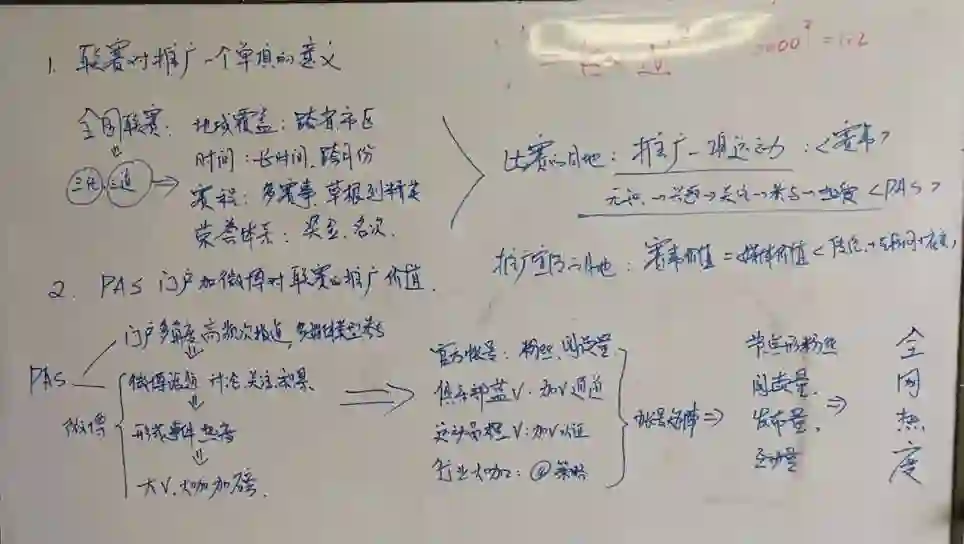 1. 联赛对推广一个单项的意义
全国联赛: 地域覆盖: 跨省市区
时间: 长时间, 跨月份
赛程: 多赛事, 草根到精英
荣誉体系: 奖金, 名次.
比赛的目地: 推广一项运动: <赛事>
无识→兴趣→关注→参与→热爱<PAS>
推广宣传的目地: 赛事价值=媒体价值
2. PAS 门户加微博对联赛的推广价值.
PAS
门户多角度高频次报道,
微博
微博话题 讨论, 关注
形成事件热度
大V, 大咖加磅.
官方帐号: 粉丝, 阅读量
俱乐部蓝V. 加V通道
运动员橙V: 加V认证
行业大咖: @策略
帐号矩阵⇒
粉丝
阅读量,
发布量, ⇒
互动量
全网热度
3000 = 1.2